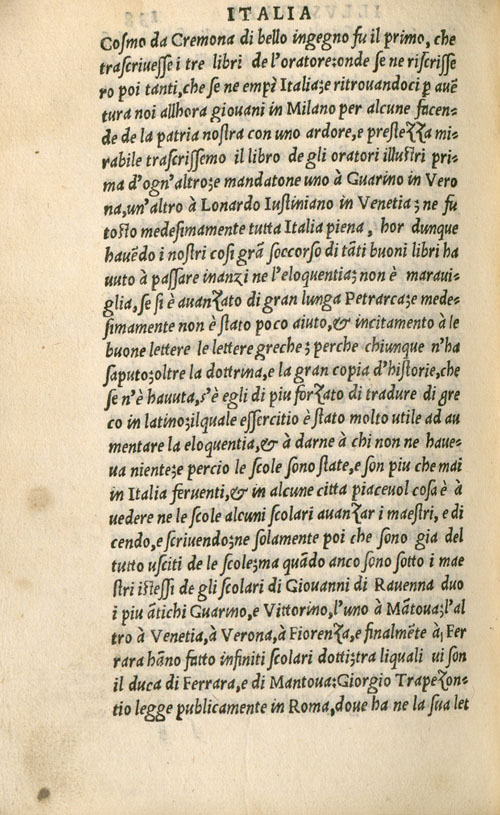 ITALIA
Coſmo da Cremona di bello ingegno fu il primo, che
traſcriueſſe i tre libri de l'oratore: onde ſe ne riſcriſſe
ro poi tanti, che ſe ne empì Italia; e ritrouandoci ꝑ auē
tura noi allhora giouani in Milano per alcune facen-
de de la patria noſtra con uno ardore, e preſtezza mi-
rabile traſcriſſemo il libro de gli oratori illuſtri pri-
ma d'ogn'altro; e mandatone uno à Guarino in Vero
na, un'altro à Lonardo Iuſtiniano in Venetia; ne fu
toſto medeſimamente tutta Italia piena, hor dunque
hauēdo i noſtri coſi grā ſoccorſo di tāti buoni libri ha
uuto à paſſare inanzi ne l'eloquentia; non è maraui-
glia, ſe ſi è auanzato di gran lunga Petrarca: e mede-
ſimamente non è ſtato poco aiuto, & incitamento à le
buone lettere le lettere greche; perche chiunque n'ha
ſaputo; oltre la dottrina, e la gran copia d'hiſtorie, che
ſe n'è hauuta, s'è egli di piu forzato di tradure di gre
co in latino; ilquale eſſercitio è ſtato molto utile ad au
mentare la eloquentia, & à darne à chi non ne haue-
ua niente: e percio le ſcole ſono ſtate, e ſon piu che mai
in Italia feruenti, & in alcune citta piaceuol coſa è à
uedere ne le ſcole alcuni ſcolari auanzar i maeſtri, e di
cendo, e ſcriuendo; ne ſolamente poi che ſono gia del
tutto uſciti de le ſcole; ma quādo anco ſono ſotto i mae
ſtri iſteſſi de gli ſcolari di Giouanni di Rauenna duo
i piu ātichi Guarino, e Vittorino, l'uno à Mātoua: l'al
tro à Venetia, à Verona, à Fiorenza, e finalmēte à Fer
rara hāno fatto infiniti ſcolari dotti; tra liquali ui ſon
il duca di Ferrara, e di Mantoua: Giorgio Trapezon-
tio legge publicamente in Roma, doue ha ne la ſua let